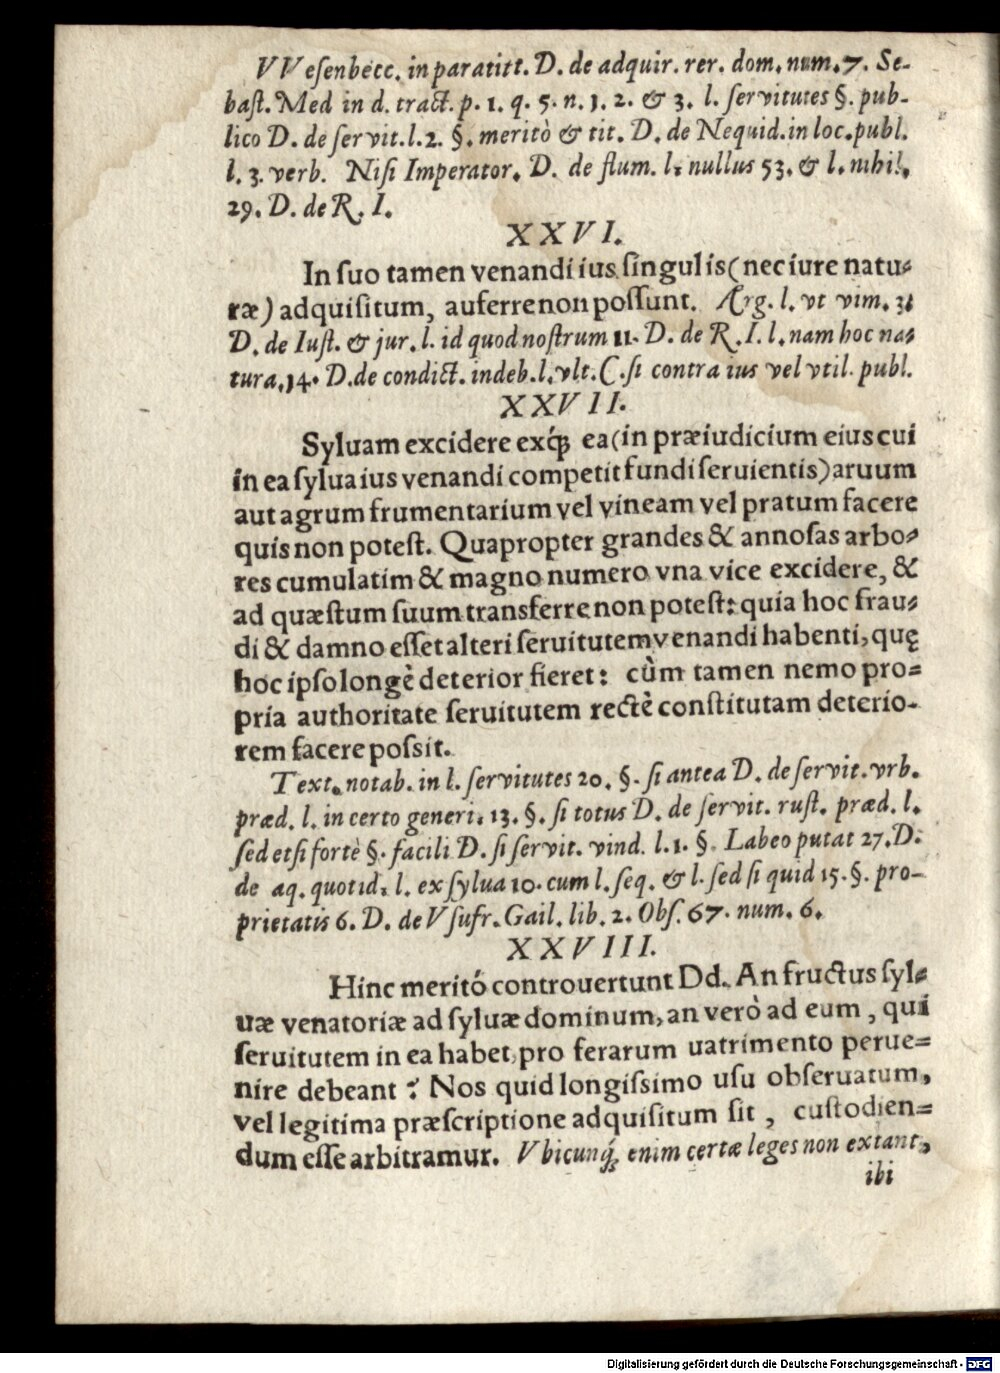 VVesenbecc. in paratitt. D. de adquir. rer. dom. num. 7. Se-
bast. Med in d. tract. p. 1. q. 5. n. 1. 2. & 3. l. servitutes §. pub-
lico D. de servit. l. 2. §. meritò & tit. D. de Nequid. in loc. publ.
l. 3. verb. Nisi Imperator. D. de flum. l. nullus 53. & l. nihil.
29. D. de R. I.
XXVI.
In suo tamen venandi ius singulis (nec iure natu-
ræ) adquisitum, auferre non possunt. Arg. l. vt vim. 3.
D. de Iust. & jur. l. id quod nostrum 11. D. de R. I. l. nam hoc na-
tura. 14. D. de condict. indeb. l. vlt. C. si contra ius vel vtil. publ.
XXVII.
Syluam excidere exq́; ea (in præiudicium eius cui
in ea sylua ius venandi competit fundi seruientis) aruum
aut agrum frumentarium vel vineam vel pratum facere
quis non potest. Quapropter grandes & annosas arbo-
res cumulatim & magno numero vna vice excidere, &
ad quæstum suum transferre non potest: quia hoc frau-
di & damno esset alteri seruitutem venandi habenti, quę
hoc ipso longè deterior fieret: cùm tamen nemo pro-
pria authoritate seruitutem rectè constitutam deterio-
rem facere possit.
Text. notab. in l. servitutes 20. §. si antea D. de servit. vrb.
præd. l. in certo generi. 13. §. si totus D. de servit. rust. præd. l.
sed etsi fortè §. facili D. si servit. vind. l. 1. §. Labeo putat 27. D.
de aq. quotid. l. ex sylua 10. cum l. seq. & l. sed si quid 15. §. pro-
prietatis 6. D. de Vsufr. Gail. lib. 2. Obs. 67. num. 6.
XXVIII.
Hinc meritó controuertunt Dd. An fructus syl-
uæ venatoriæ ad syluæ dominum, an verò ad eum, qui
seruitutem in ea habet, pro ferarum uatrimento perue-
nire debeant? Nos quid longissimo usu obseruatum,
vel legitima præscriptione adquisitum sit, custodien-
dum esse arbitramur. Vbicunq́; enim certæ leges non extant,
ibi
Digitalisierung gefördert durch die Deutsche Forschungsgemeinschaft - DFG